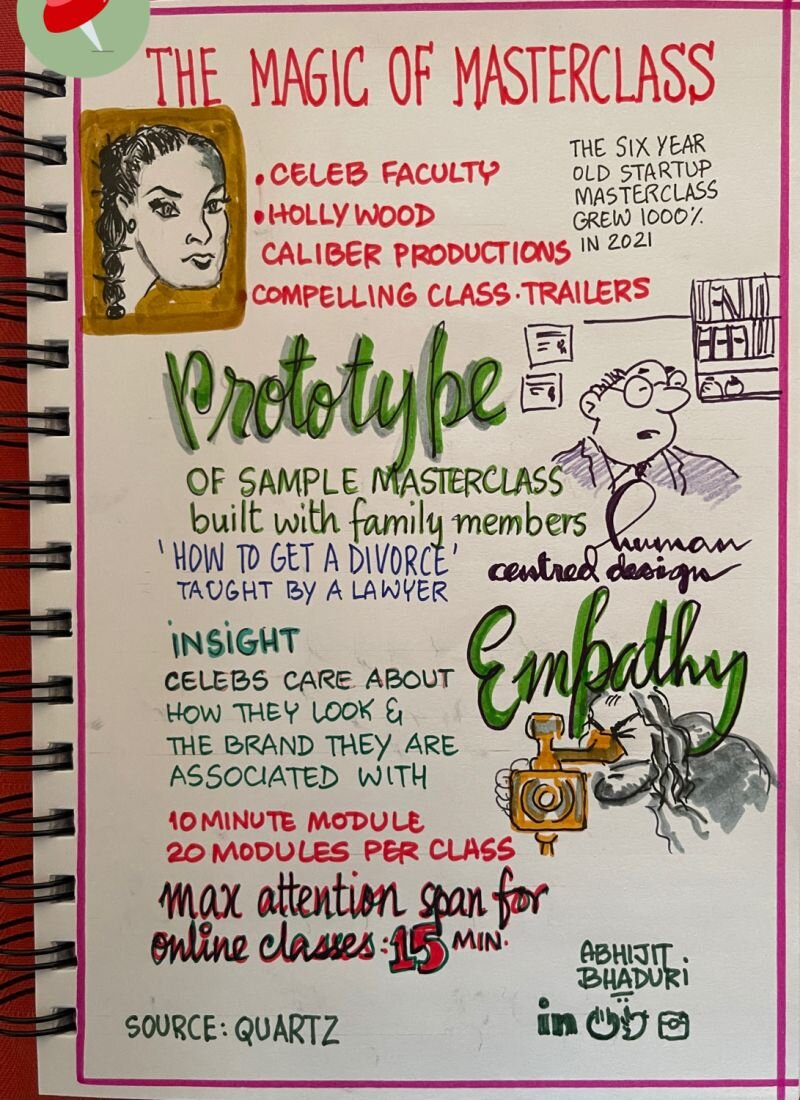 THE MAGIC OF MASTERCLASS
• CELEB FACULTY
• HOLLYWOOD
CALIBER PRODUCTIONS
COMPELLING CLASS·TRAILERS
THE SIX YEAR
OLD STARTUP
MASTERCLASS
GREW 1000%
IN 2021
Prototype
OF SAMPLE MASTERCLASS
built with family members
'HOW TO GET A DIVORCE'
TAUGHT BY A LAWYER
human
centred design
INSIGHT
CELEBS CARE ABOUT
HOW THEY LOOK &
THE BRAND THEY ARE
ASSOCIATED WITH
Empathy
10 MINUTE MODULE
20 MODULES PER CLASS
max attention span for
online classes: 15 MIN.
ABHIJIT
BHADURI
in
SOURCE: QUARTZ